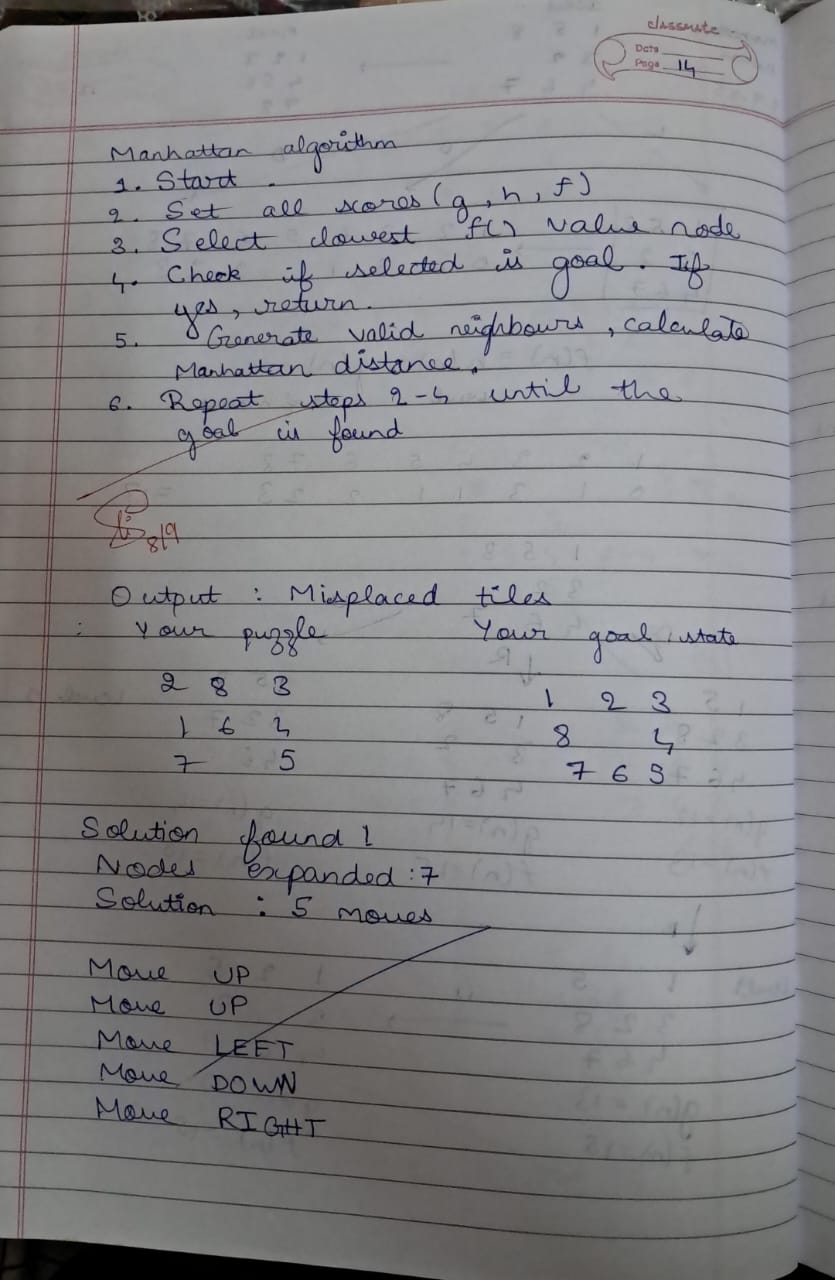 classmate
Date
Page 14
Manhattan algorithm
1. Start.
2. Set all scores (g, h, f)
3. Select lowest f() value node
4. Check if selected is goal. If
yes, return.
5. Generate valid neighbours, calculate
Manhattan distance.
6. Repeat steps 2-4 until the
goal is found
8/9
Output : Misplaced tiles
: Your puzzle Your goal state
2 8 3
1 2 3
1 6 4
8 4
7 5
7 6 5
Solution found!
Nodes expanded : 7
Solution : 5 moves
Move UP
Move UP
Move LEFT
Move DOWN
Move RIGHT